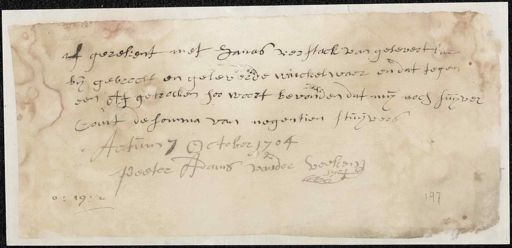 gereekent met Janas verstock van gelevert
bij gebrocht en geleverde winckelwaer en dat tegen
een getrocken soo wort bevonden dat mij noch suyver
Comt de somma van negentien stuyvers
Actum 7 October 1704
Peeter Adams vander
0 : 19 : 
197